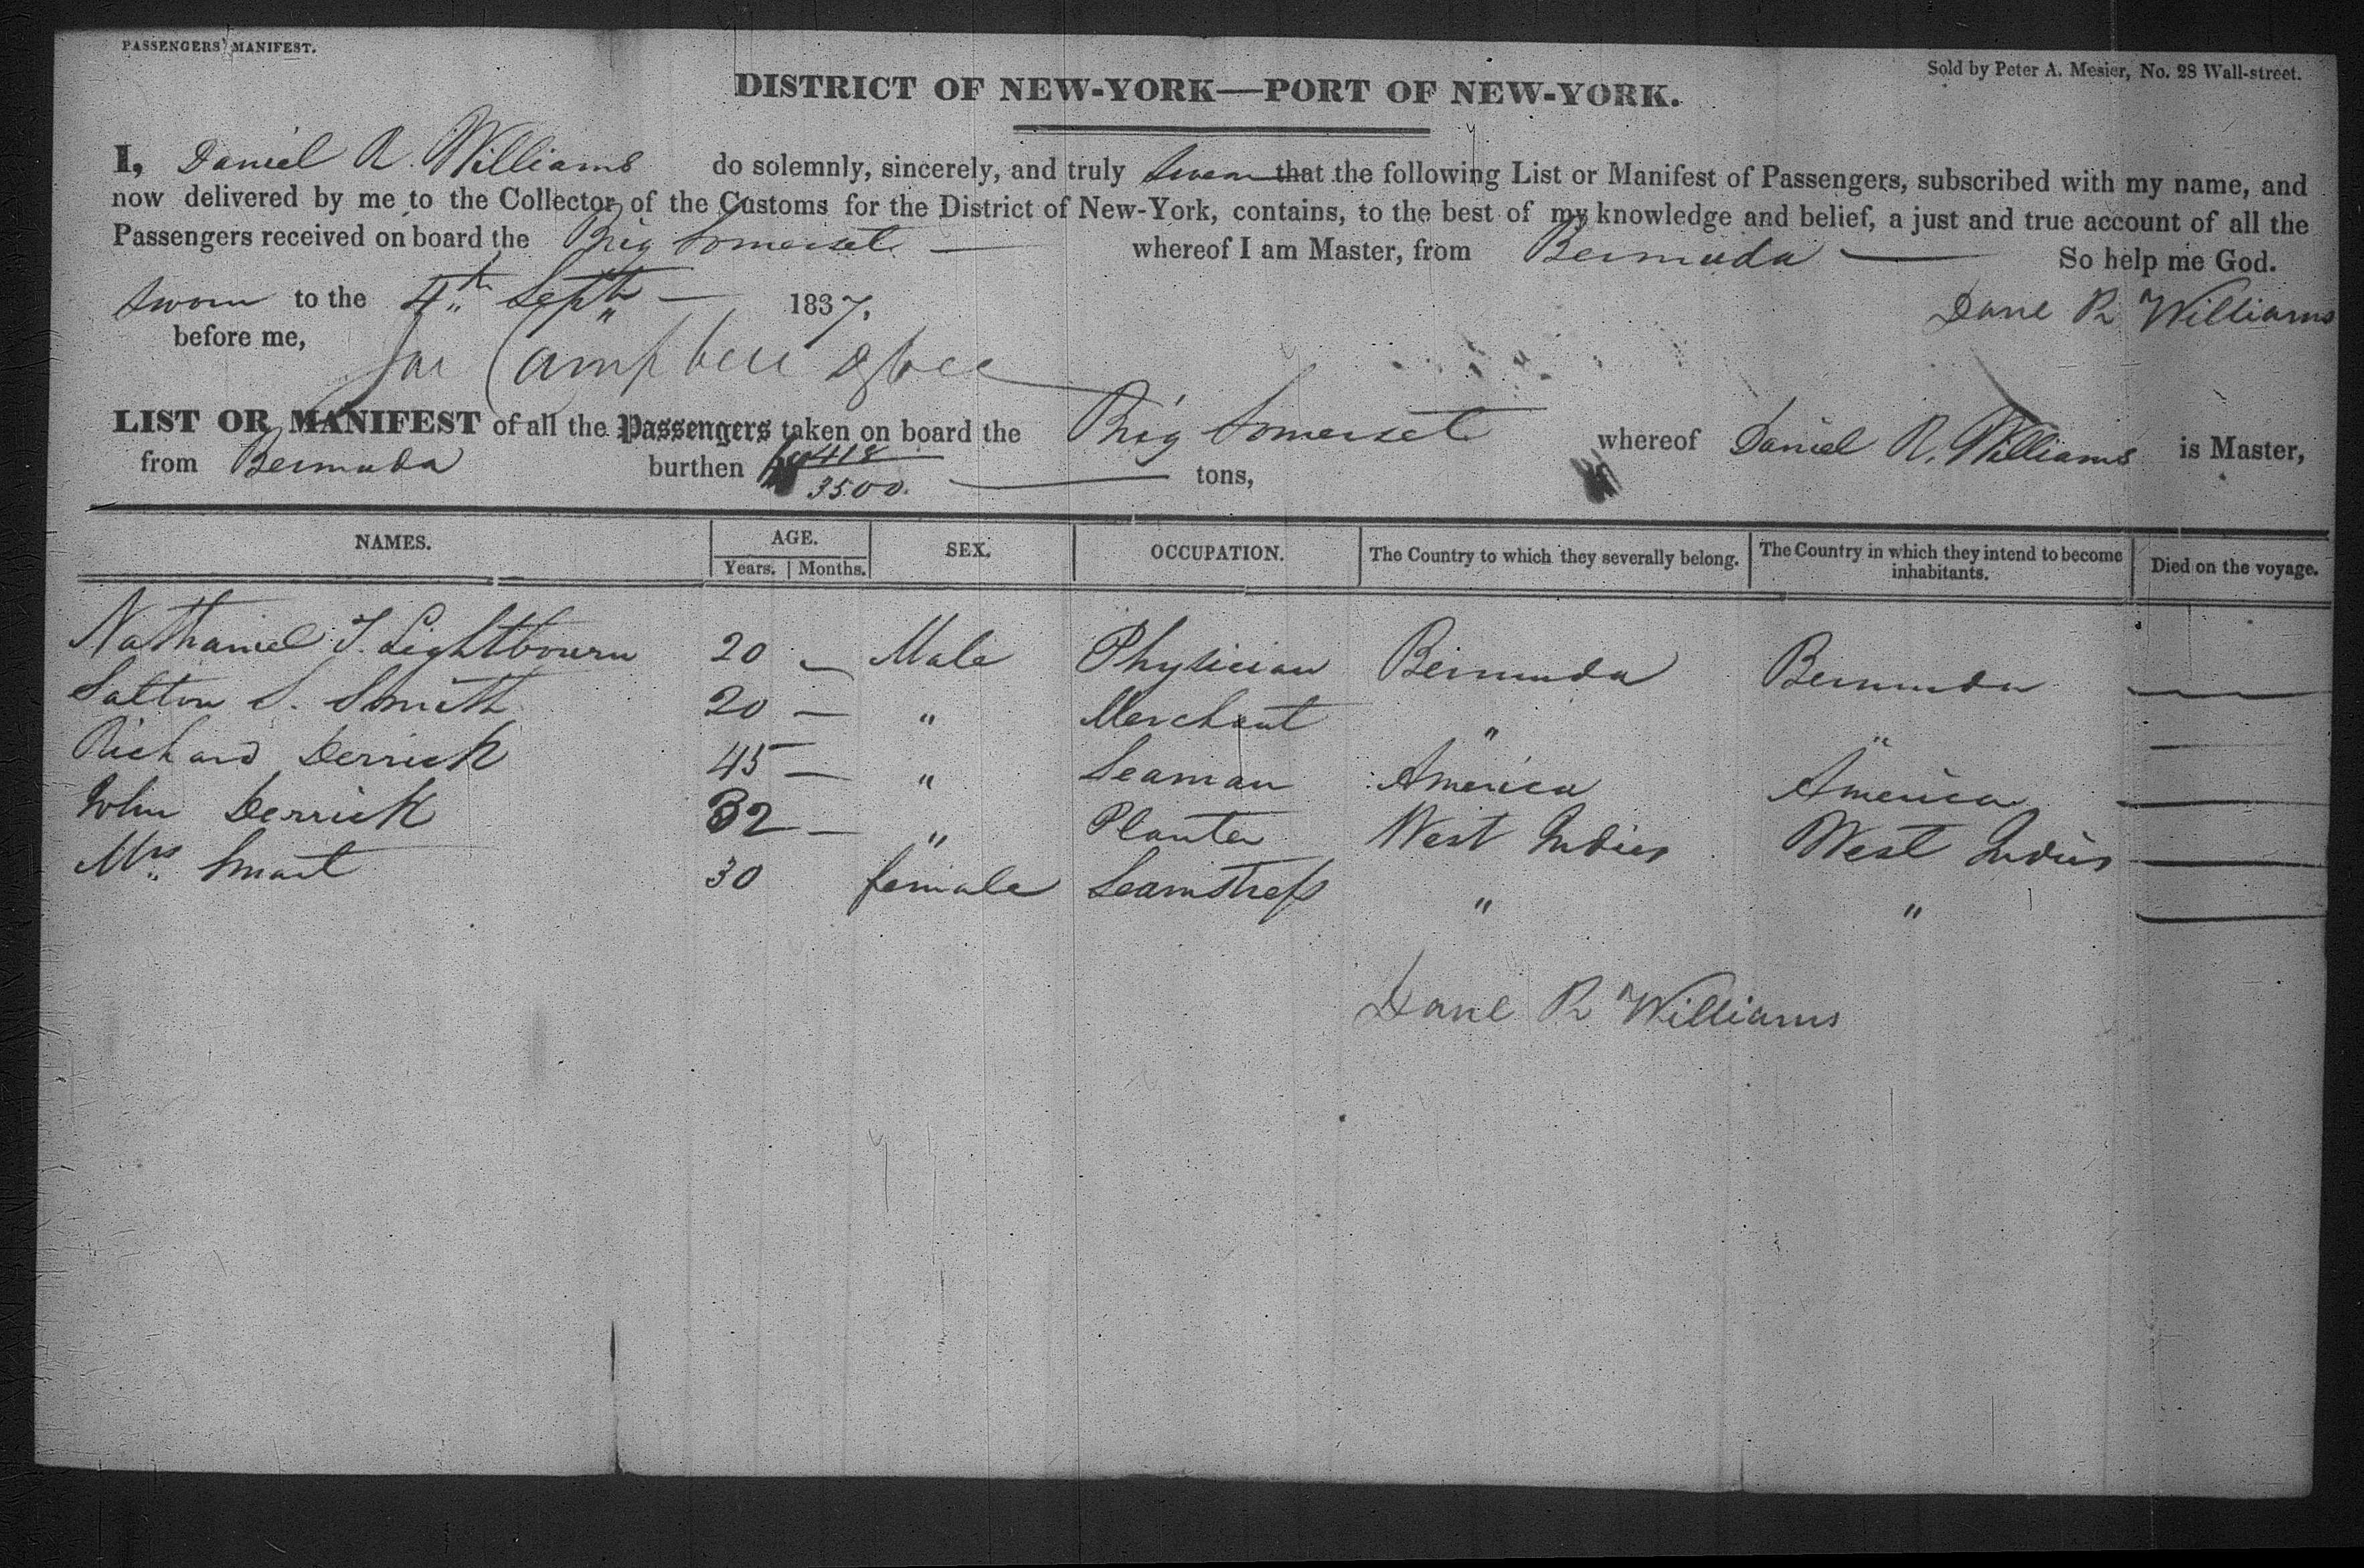 PASSENGERS' MANIFEST.
Sold by Peter A. Mesier, No. 28 Wall-street.
DISTRICT OF NEW-YORK—PORT OF NEW-YORK.
I, Daniel R. Williams do solemnly, sincerely, and truly swear that the following List or Manifest of Passengers, subscribed with my name, and
now delivered by me to the Collector of the Customs for the District of New-York, contains, to the best of my knowledge and belief, a just and true account of all the
Passengers received on board the Brig Somerset — whereof I am Master, from Bermuda — So help me God.
Sworn to the 4th Septh — 1837.
Danl R Williams
before me,
Campbell
LIST OR MANIFEST of all the Passengers taken on board the Brig Somerset whereof Daniel R. Williams is Master,
from Bermuda burthen tons,
NAMES. AGE. SEX. OCCUPATION. The Country to which they severally belong. The Country in which they intend to become inhabitants. Died on the voyage.
Years. Months.
Nathaniel T. Lightbourn 20 — Male Physician Bermuda Bermuda —
Salton S. Smith 20 — " Merchant " " —
Richard Derrick 45 — " Seaman America America —
John Derrick 32 — " Planter West Indies West Indies —
Mrs. Smart 30 female Seamstress " " —
Danl R Williams